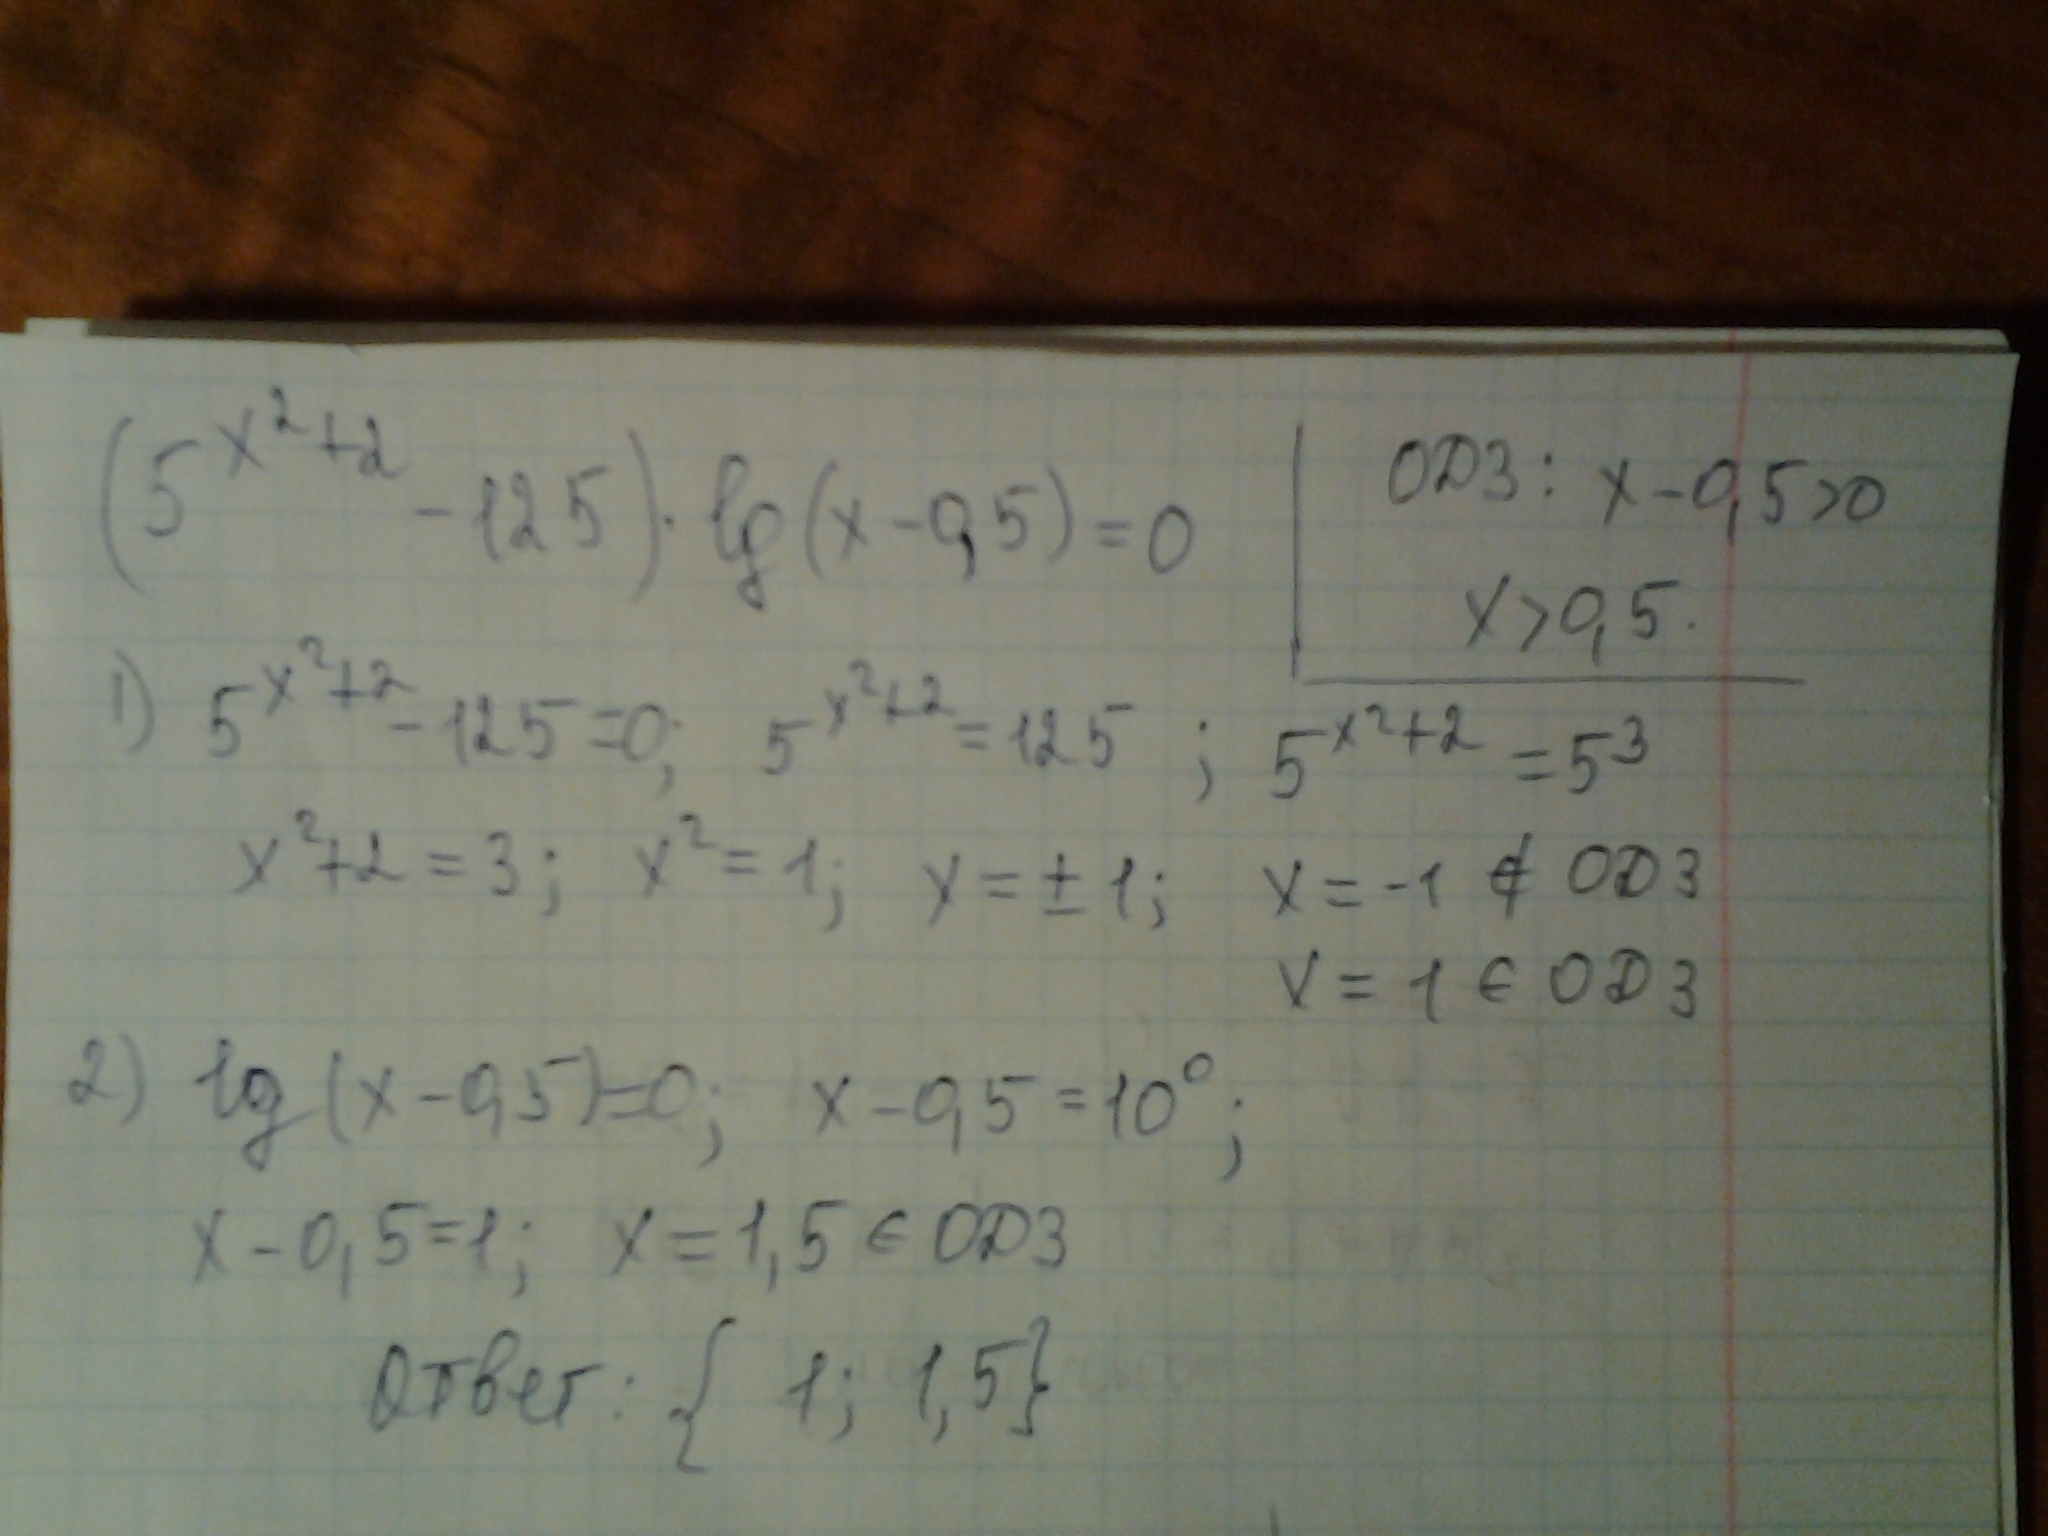 (5^{x²+2} - 125) · lg(x - 0,5) = 0
ОДЗ: x - 0,5 > 0
x > 0,5.
1) 5^{x²+2} - 125 = 0; 5^{x²+2} = 125 ; 5^{x²+2} = 5³
x² + 2 = 3; x² = 1; x = ± 1; x = -1 ∉ ОДЗ
x = 1 ∈ ОДЗ
2) lg(x - 0,5) = 0; x - 0,5 = 10⁰;
x - 0,5 = 1; x = 1,5 ∈ ОДЗ
Ответ: { 1; 1,5}